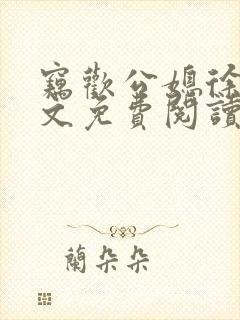 竊歡公媳徐
文免費閱讀
蘭朵朵